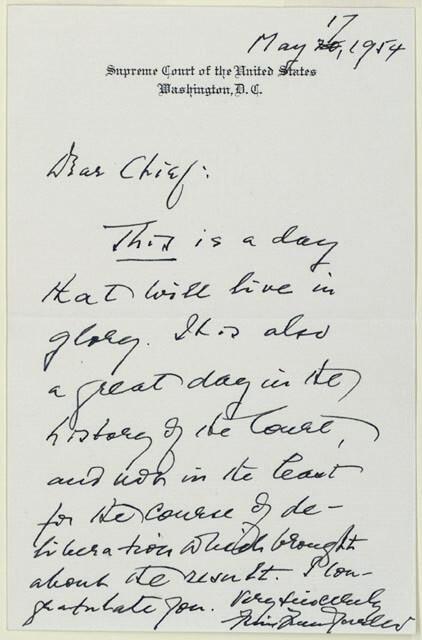 May 17, 1954
Supreme Court of the United States
Washington, D. C.
Dear Chief:
This is a day
that will live in
glory. It is also
a great day in the
history of the Court,
and not in the least
for the course of de-
liberation which brought
about the result. I con-
gratulate you.
Very sincerely
Felix Frankfurter